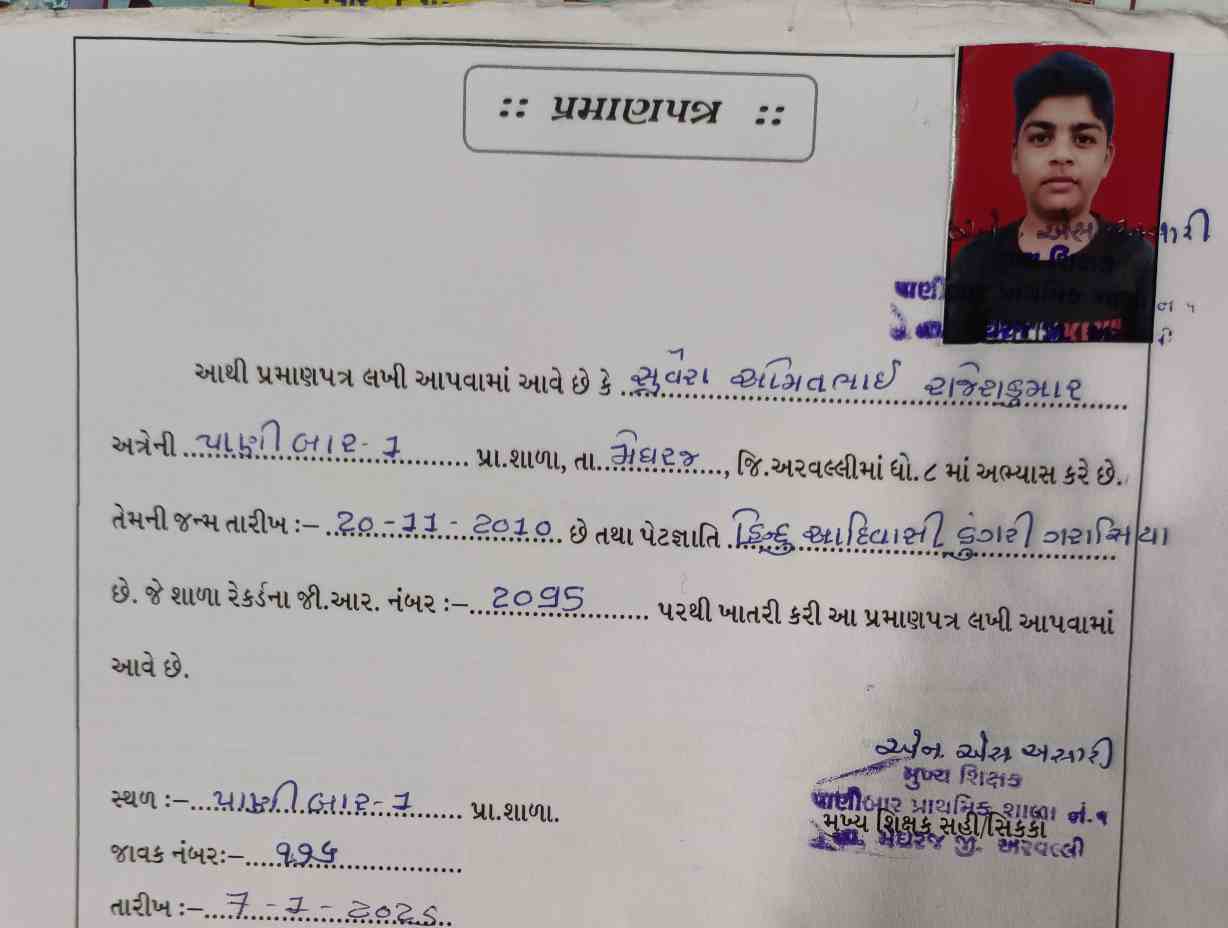 :: પ્રમાણપત્ર ::
એન. એસ અસારી
આથી પ્રમાણપત્ર લખી આપવામાં આવે છે કે સૂવેરા અમિતભાઈ રાજેશકુમાર
અત્રેની પાણીબાર-1 પ્રા.શાળા, તા. મેઘરજ, જિ.અરવલ્લીમાં ધો.૮ માં અભ્યાસ કરે છે.
તેમની જન્મ તારીખ :– 20-11-2010 છે તથા પેટજ્ઞાતિ હિન્દુ આદિવાસી ડુંગરી ગરાસિયા
છે. જે શાળા રેકર્ડના જી.આર. નંબર :– 2095 પરથી ખાતરી કરી આ પ્રમાણપત્ર લખી આપવામાં
આવે છે.
એન. એસ અસારી
મુખ્ય શિક્ષક
પાણીબાર પ્રાથમિક શાળા નં.૧
મુખ્ય શિક્ષક સહી/સિકકો
મેઘરજ જી. અરવલ્લી
સ્થળ :– પાણીબાર-1 પ્રા.શાળા.
જાવક નંબર:– ૧૧૬
તારીખ :– 7-7-2025